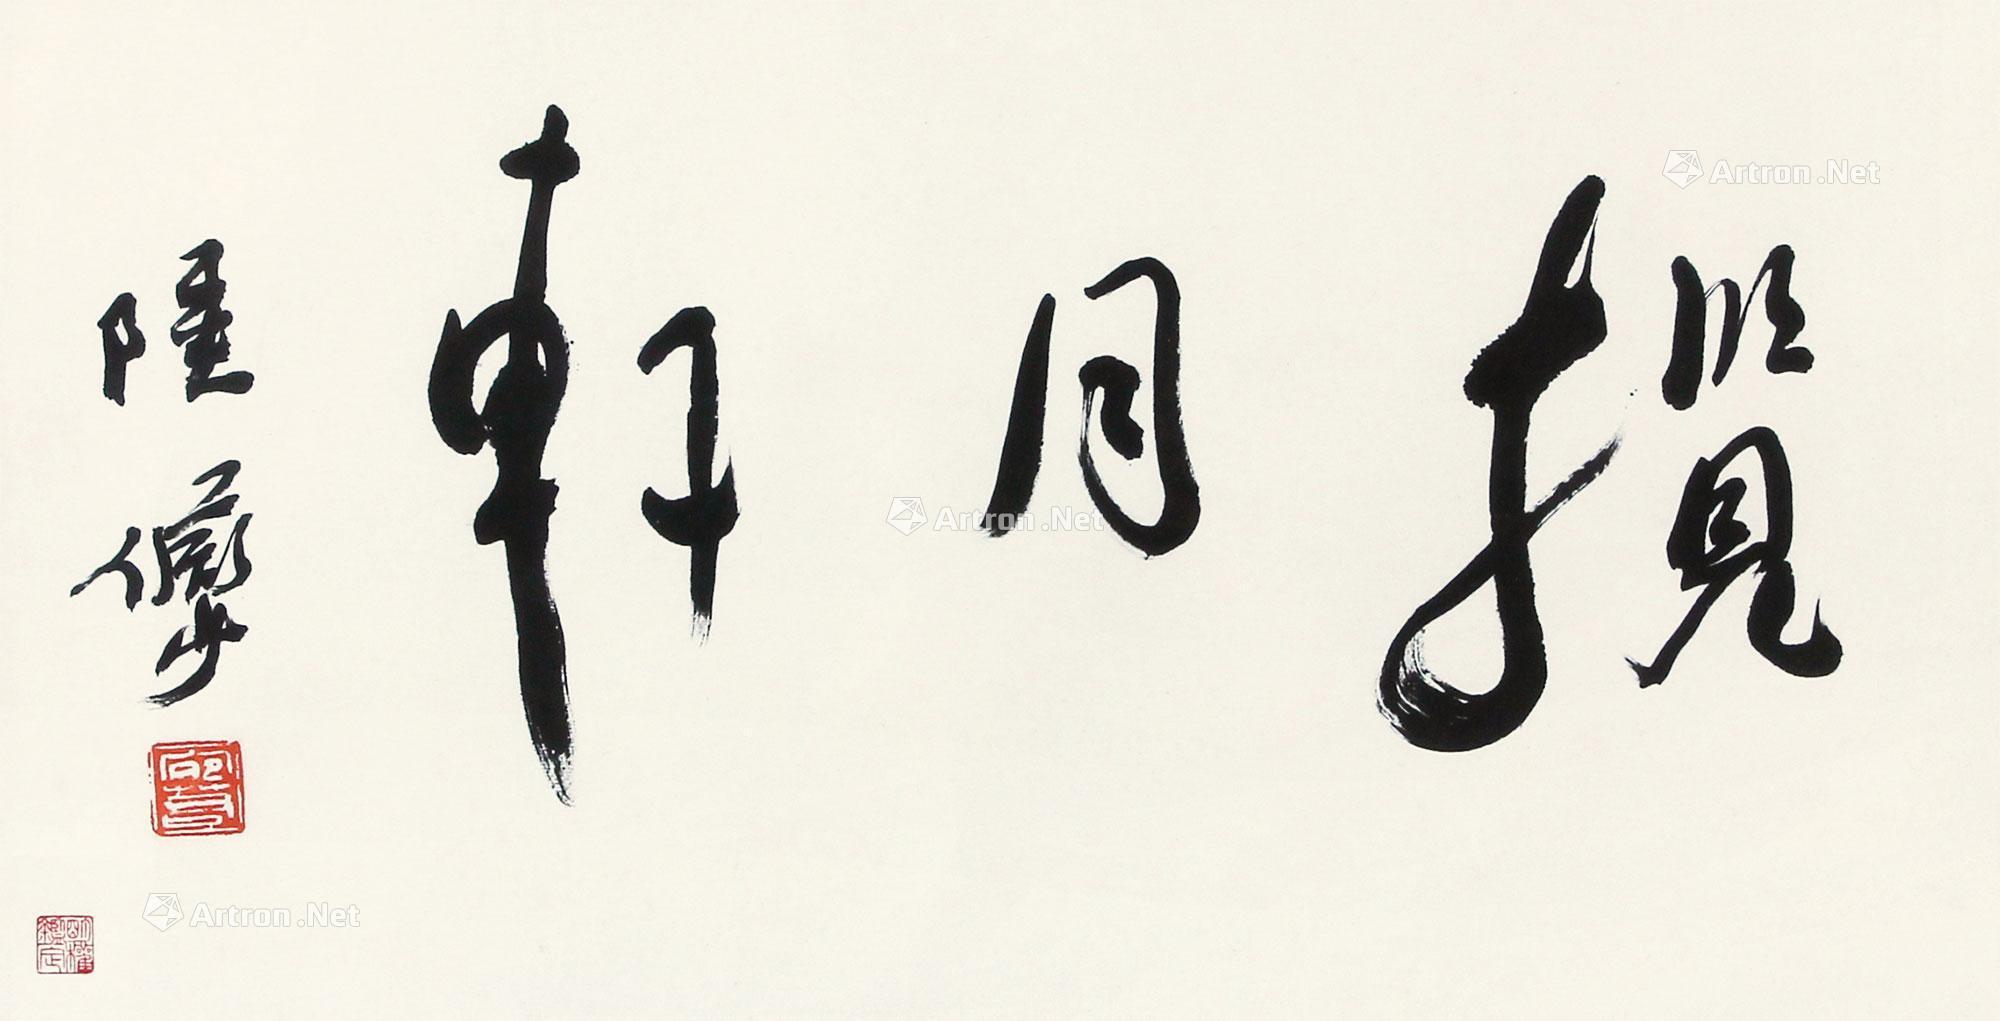 揽月軒
陸儼少
明權鑑定
Artron.Net
Artron.Net
Artron.Net